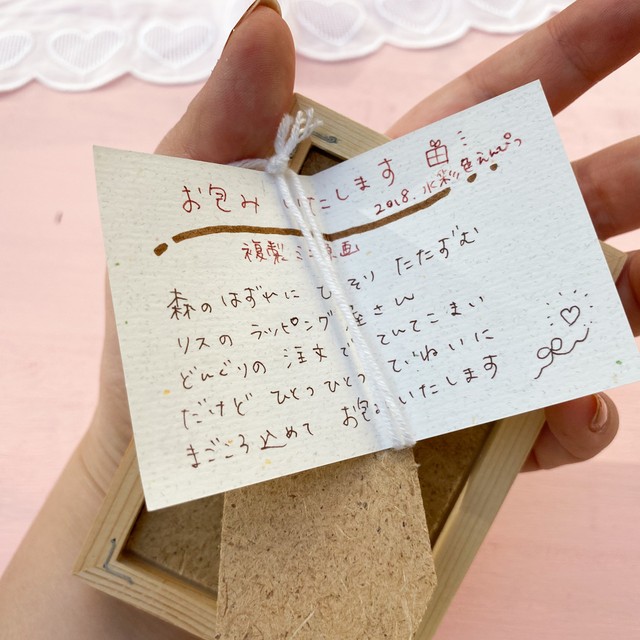 お包み いたします
2018. 水彩色えんぴつ
複製ミニ原画
森のはずれに ひっそり たたずむ
リスの ラッピング屋さん
どんぐりの 注文で てんてこまい
だけど ひとつひとつ ていねいに
まごころ込めて お包みいたします